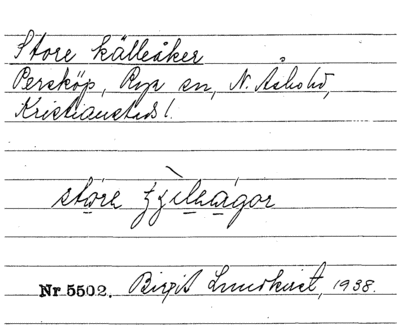 Store källeåker
Persköp, Röja sn, N. Åsbohd,
Kristianstads l.
störe
Nr. 5502. Birgit Lundkvist, 1938.